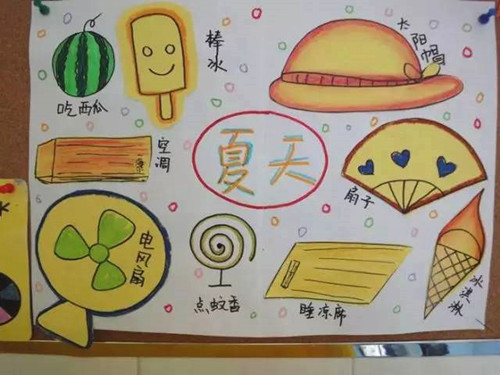 棒冰
太阳帽
吃西瓜
空调
夏天
扇子
电风扇
点蚊香
睡凉席
冰淇淋